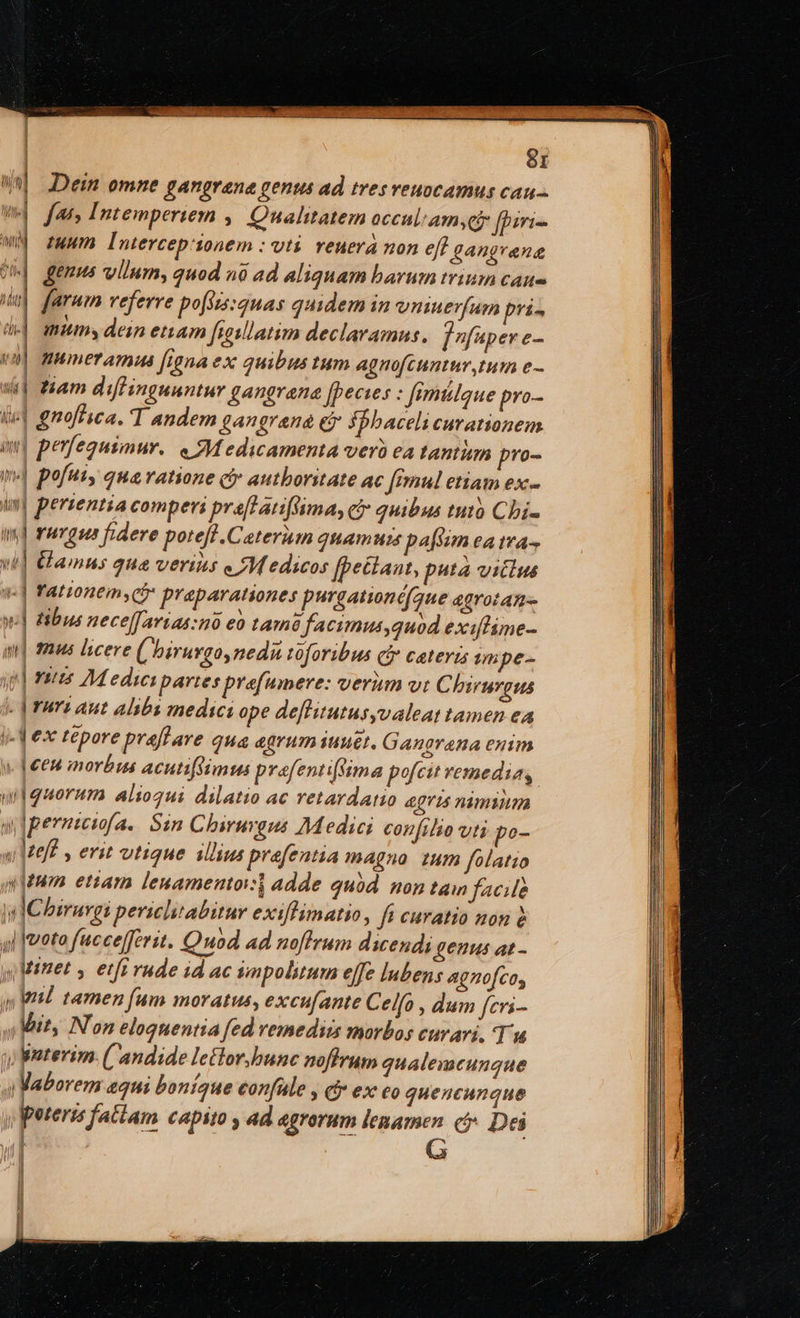 81
Dein omne gangrænæ genus ad tres reuocamus cau-
ſas, Intemperiem, Qualitatem occultam, & ſpiri-
tuum Interceptionem: vti reuerà non eſt gangrænæ
genus vllum, quod nō ad aliquam harum trium cau-
ſarum referre poſsis: quas quidem in vniuerſum pri-
mùm, dein etiam ſigillatim declaramus. Inſuper e-
numeramus ſigna ex quibus tum agnoſcuntur, tum e-
tiam diſtinguuntur gangrænæ ſpecies: ſimúlque pro-
gnoſtica. Tandem gangrænæ & sphaceli curationem
perſequimur. Medicamenta verò ea tantùm pro-
poſui, quæ ratione & authoritate ac ſimul etiam ex-
perientia comperi præſtatiſsima, & quibus tutò Chi-
rurgus fidere poteſt. Cæterùm quamuis paſsim ea tra-
ctamus quæ veriùs Medicos ſpectant, putà victus
rationem, & præparationes purgationéſque ægrotan-
tibus neceſſarias: nō eò tamē facimus, quòd exiſtime-
mus licere Chirurgo, nedū tōſoribus & cæteris impe-
ritis Medici partes præſumere: verùm vt Chirurgus
ruri aut alibi medici ope deſtitutus, valeat tamen ea
ex tēpore præſtare quæ ægrum iuuēt. Gangræna enim
ceu morbus acutiſsimus præſentiſsima poſcit remedia,
quorum alioqui dilatio ac retardatio ægris nimiùm
pernicioſa. Sin Chirurgus Medici conſilio vti po-
teſt, erit vtique illius præſentia magno tum ſolatio
tum etiam leuamento: adde quòd non tam facilè
Chirurgi periclitabitur exiſtimatio, ſi curatio non è
voto ſucceſſerit. Quòd ad noſtrum dicendi genus at-
tinet, etſi rude id ac impolitum eſſe lubens agnoſco,
nil tamen ſum moratus, excuſante Celſo, dum ſcri-
bit, Non eloquentia ſed remediis morbos curari. Tu
interim Candide lector, hunc noſtrum qualemcunque
laborem æqui boníque conſule, & ex eo quencunque
poteris factam capito, ad ægrorum leuamen & Dei
G